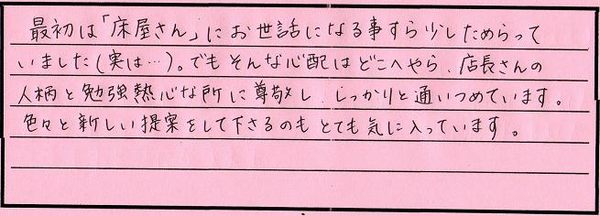 最初は「床屋さん」にお世話になる事すら少しためらって
いました(実は…)。でもそんな心配はどこへやら、店長さんの
人柄と勉強熱心な所に尊敬し しっかりと通いつめています。
色々と新しい提案をして下さるのもとても気に入っています。